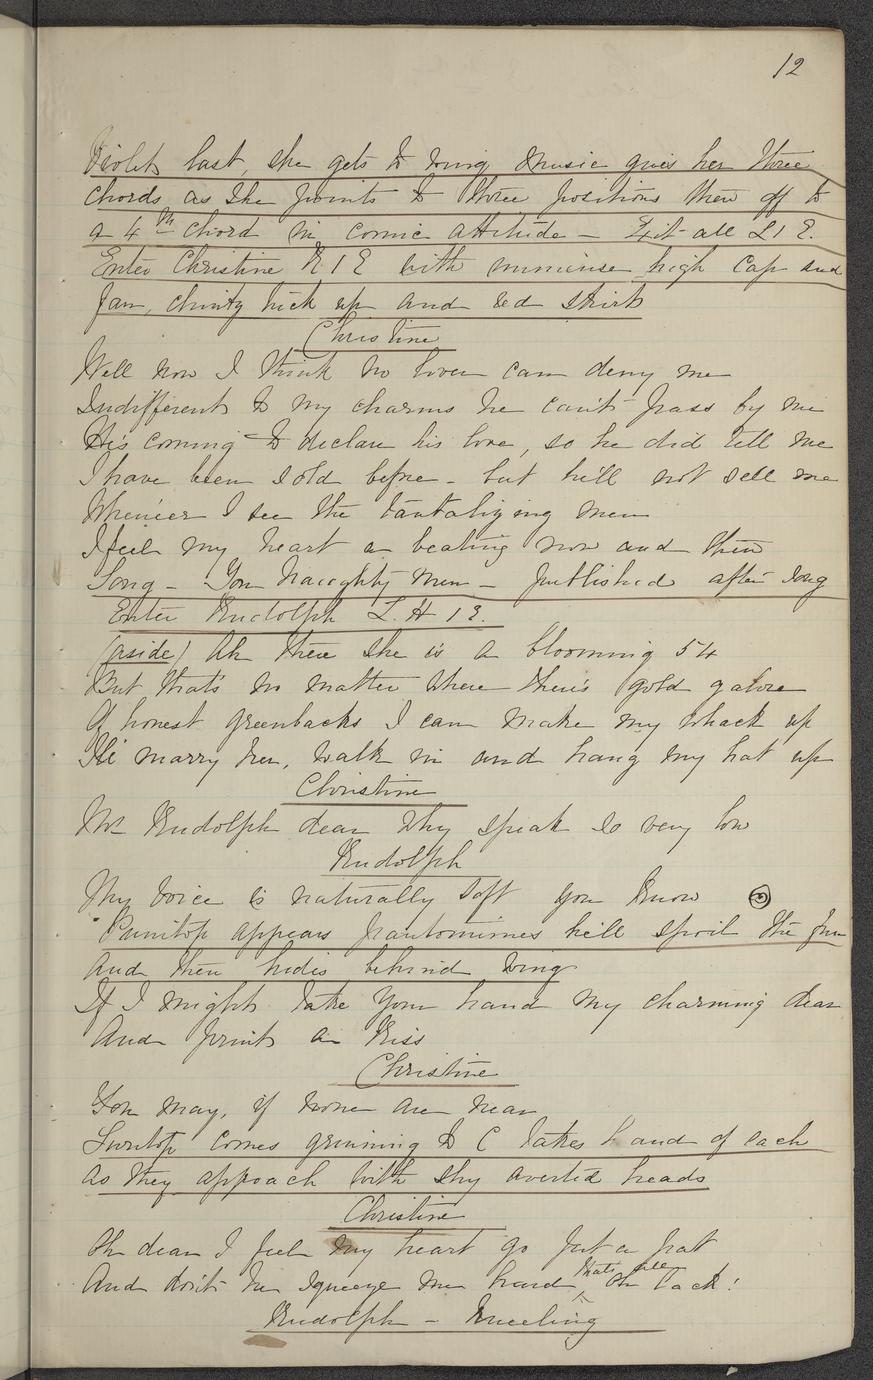 12
Violet last, she gets to wing music gives her three
chords as she points to three positions then off to
a 4th chord in comic attitude – Exit all L 1 E.
Enter Christine R 1 E with immense high cap and
fan, chintz tuck up and red skirt
Christine
Well now I think no lover can deny me
Indifferent to my charms he can't pass by me
He's coming to declare his love, so he did tell me
I have been sold before – but he'll not sell me
Whene'er I see the tantalizing men
I feel my heart a beating now and then
Song – You Naughty Men – published after song
Enter Rudolph L. H 1 E.
(aside) Ah there she is a blooming 54
But that's no matter where there's gold galore
Of honest greenbacks I can make my whack up
I'll marry her, walk in and hang my hat up
Christine
Mr Rudolph dear why speak so very low
Rudolph
My voice is naturally soft you know
Punitop appears pantomimes he'll spoil the fun
And then hides behind wing
If I might take your hand my charming dear
And print a Kiss
Christine
You may, if none are near
comes grinning to C takes hand of each
as they approach with shy averted heads
Christine
Oh dear I feel my heart go pit a pat
And don't he squeeze me hard that's all Oh lack!
Rudolph – Kneeling